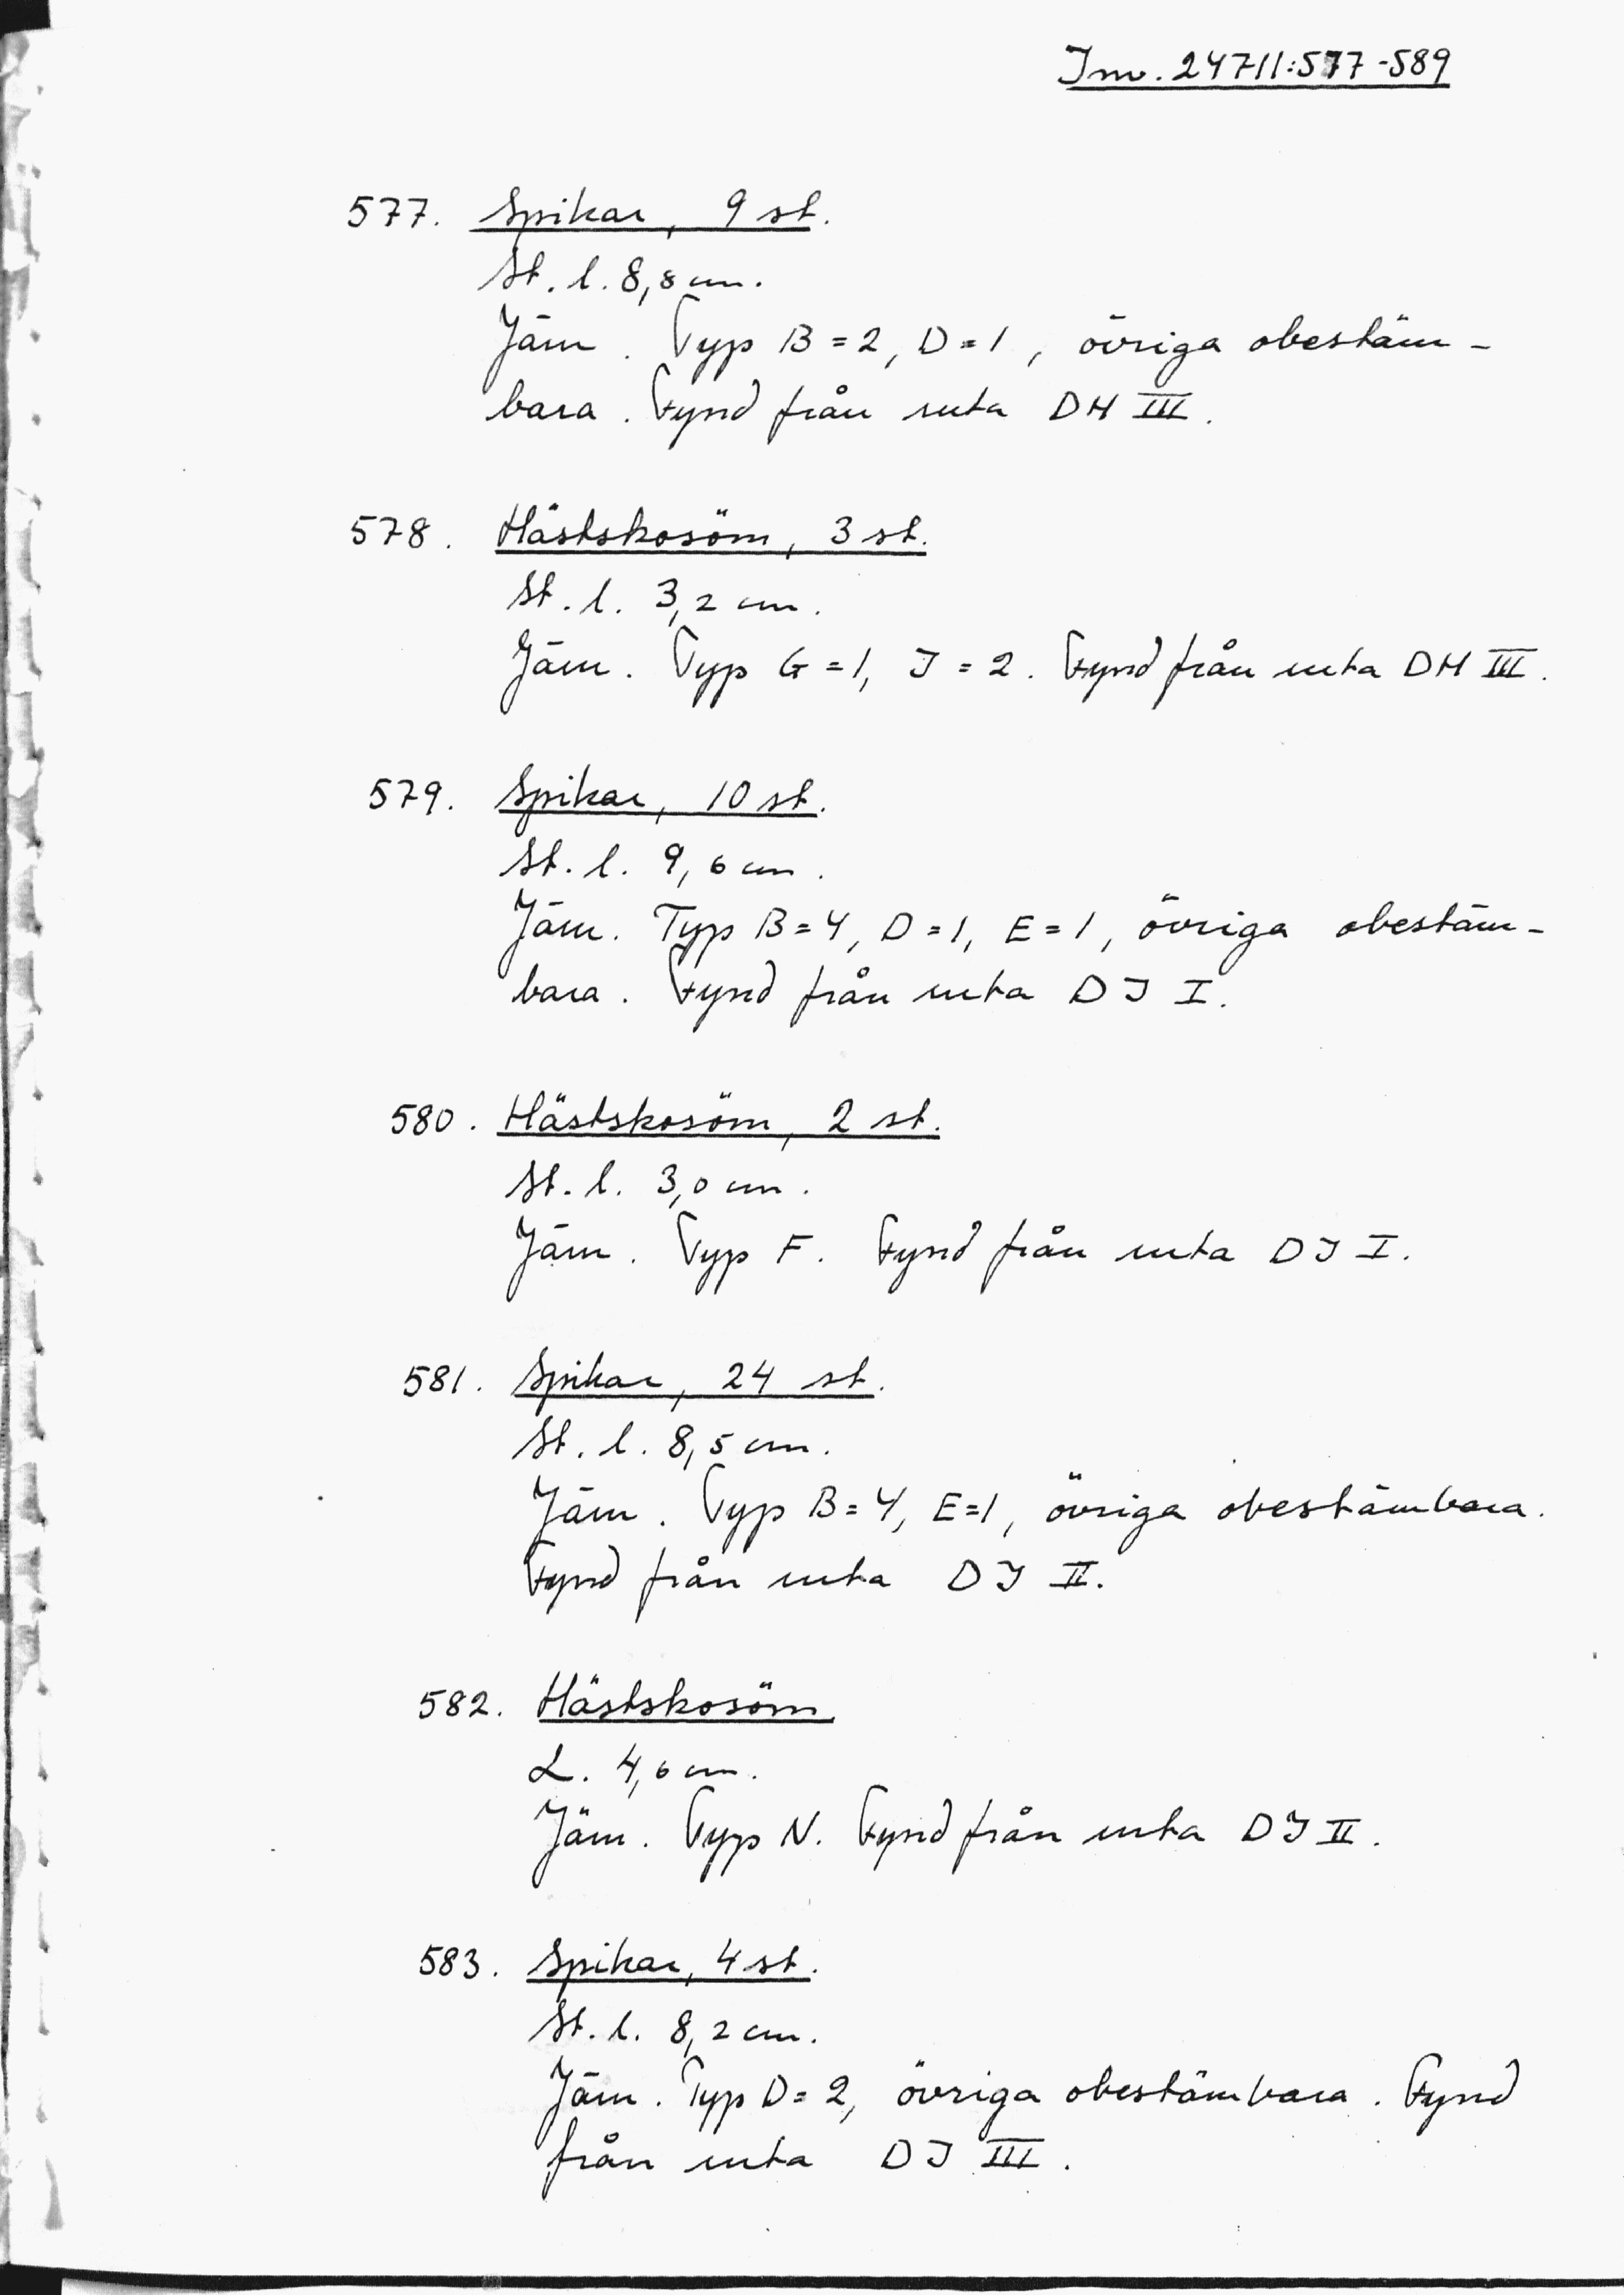 Inv. 24711:577-589
577. Spikar, 9 st.
St. l. 8,8 cm.
Järn. Typ B=2, D=1, övriga obestäm-
bara. Fynd från ruta DH III.
578. Hästskosöm, 3 st.
St. l. 3,2 cm.
Järn. Typ G=1, I=2. Fynd från ruta DH III.
579. Spikar, 10 st.
St. l. 9,6 cm.
Järn. Typ B=4, D=1, E=1, övriga obestäm-
bara. Fynd från ruta DI I.
580. Hästskosöm, 2 st.
St. l. 3,0 cm.
Järn. Typ F. Fynd från ruta DI I.
581. Spikar, 24 st.
St. l. 8,5 cm.
Järn. Typ B=4, E=1, övriga obestämbara.
Fynd från ruta DI II.
582. Hästskosöm
L. 4,6 cm.
Järn. Typ N. Fynd från ruta DI II.
583. Spikar, 4 st.
St. l. 8,2 cm.
Järn. Typ D=2, övriga obestämbara. Fynd
från ruta DI III.